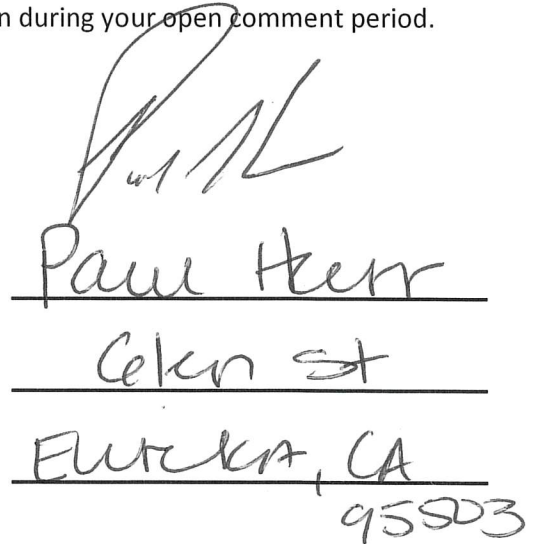 n during your open comment period.
Paul Herr
Glen St
Eureka, CA
95503